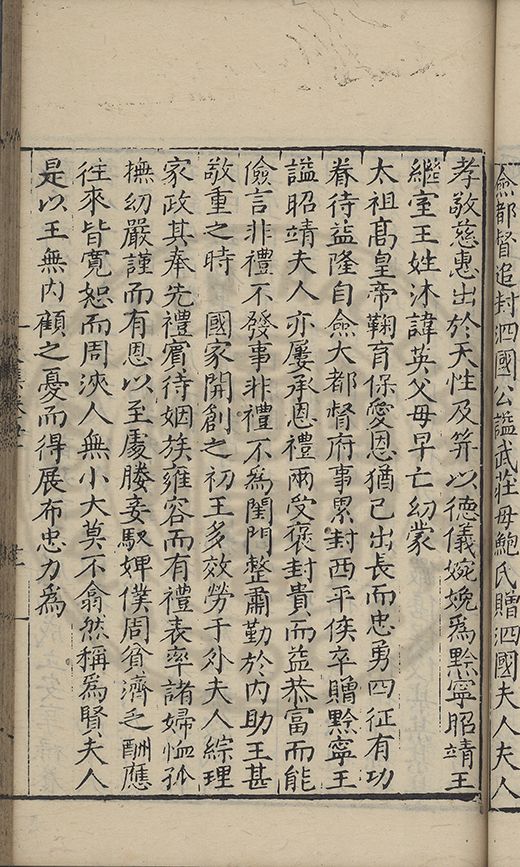 僉都督追封泗國公諡武莊母鮑氏贈泗國夫人夫人
孝敬慈惠出於天性及笄以德儀婉娩爲黔寧昭靖王
繼室王姓沐諱英父母早亡幼蒙
太祖高皇帝鞠育保愛恩猶己出長而忠勇四征有功
眷待益隆自僉大都督府事累封西平侯卒贈黔寧王
諡昭靖夫人亦屢承恩禮兩受褒封貴而益恭富而能
儉言非禮不發事非禮不爲閨門整肅勤於內助王甚
敬重之時 國家開創之初王多效勞于外夫人綜理
家政其奉先禮賓待姻族雍容而有禮表率諸婦恤孤
撫幼嚴謹而有恩以至處媵妾馭婢僕周貧濟乏酬應
往來皆寬恕而周浹人無小大莫不翕然稱爲賢夫人
是以王無內顧之憂而得展布忠力爲